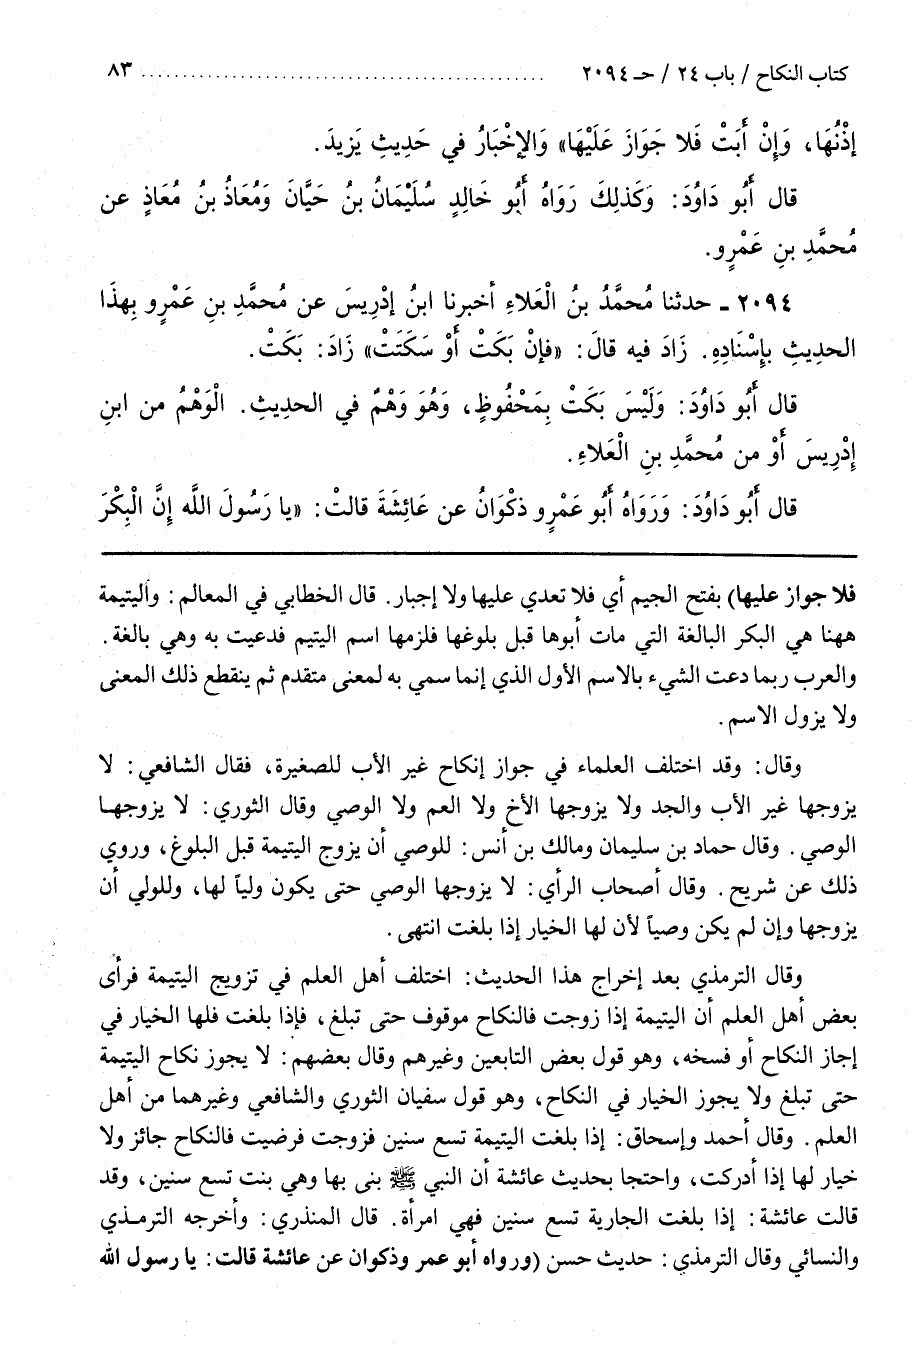 كتاب النكاح / باب ٢٤ / حـ ٢٠٩٤ ........................................ ٨٣
إذْنُهَا، وَإِنْ أَبَتْ فَلا جَوَازَ عَلَيْهَا» وَالإخْبَارُ في حَدِيثِ يَزِيدَ.
قال أَبُو دَاوُدَ: وَكَذلِكَ رَوَاهُ أَبُو خَالِدٍ سُلَيْمَانُ بنُ حَيَّانَ وَمُعَاذُ بنُ مُعَاذٍ عن
مُحمَّدِ بنِ عَمْرٍو.
٢٠٩٤ ـ حدثنا مُحمَّدُ بنُ الْعَلاءِ أخبرنا ابنُ إدْرِيسَ عن مُحمَّدِ بنِ عَمْرٍو بِهذَا
الحدِيثِ بإسْنَادِهِ. زَادَ فيه قالَ: «فإنْ بَكَتْ أَوْ سَكَتَتْ» زَادَ: بَكَتْ.
قال أَبُو دَاوُدَ: وَلَيْسَ بَكَتْ بِمَحْفُوظٍ، وَهُوَ وَهْمٌ في الحديثِ. الْوَهْمُ من ابنِ
إِدْرِيسَ أَوْ من مُحمَّدِ بنِ الْعَلاءِ.
قال أَبُو دَاوُدَ: وَرَوَاهُ أَبُو عَمْرٍو ذكْوَانُ عن عَائِشَةَ قالتْ: «يا رَسُولَ اللَّه إنَّ الْبِكْرَ
فلا جواز عليها) بفتح الجيم أي فلا تعدي عليها ولا إجبار. قال الخطابي في المعالم: واليتيمة
ههنا هي البكر البالغة التي مات أبوها قبل بلوغها فلزمها اسم اليتيم فدعيت به وهي بالغة.
والعرب ربما دعت الشيء بالاسم الأول الذي إنما سمي به لمعنى متقدم ثم ينقطع ذلك المعنى
ولا يزول الاسم.
وقال: وقد اختلف العلماء في جواز إنكاح غير الأب للصغيرة، فقال الشافعي: لا
يزوجها غير الأب والجد ولا يزوجها الأخ ولا العم ولا الوصي وقال الثوري: لا يزوجها
الوصي. وقال حماد بن سليمان ومالك بن أنس: للوصي أن يزوج اليتيمة قبل البلوغ، وروي
ذلك عن شريح. وقال أصحاب الرأي: لا يزوجها الوصي حتى يكون ولياً لها، وللولي أن
يزوجها وإن لم يكن وصياً لأن لها الخيار إذا بلغت انتهى.
وقال الترمذي بعد إخراج هذا الحديث: اختلف أهل العلم في تزويج اليتيمة فرأى
بعض أهل العلم أن اليتيمة إذا زوجت فالنكاح موقوف حتى تبلغ، فإذا بلغت فلها الخيار في
إجاز النكاح أو فسخه، وهو قول بعض التابعين وغيرهم وقال بعضهم: لا يجوز نكاح اليتيمة
حتى تبلغ ولا يجوز الخيار في النكاح، وهو قول سفيان الثوري والشافعي وغيرهما من أهل
العلم. وقال أحمد وإسحاق: إذا بلغت اليتيمة تسع سنين فزوجت فرضيت فالنكاح جائز ولا
خيار لها إذا أدركت، واحتجا بحديث عائشة أن النبي ﷺ بنى بها وهي بنت تسع سنين، وقد
قالت عائشة: إذا بلغت الجارية تسع سنين فهي امرأة. قال المنذري: وأخرجه الترمذي
والنسائي وقال الترمذي: حديث حسن (ورواه أبو عمر وذكوان عن عائشة قالت: يا رسول الله